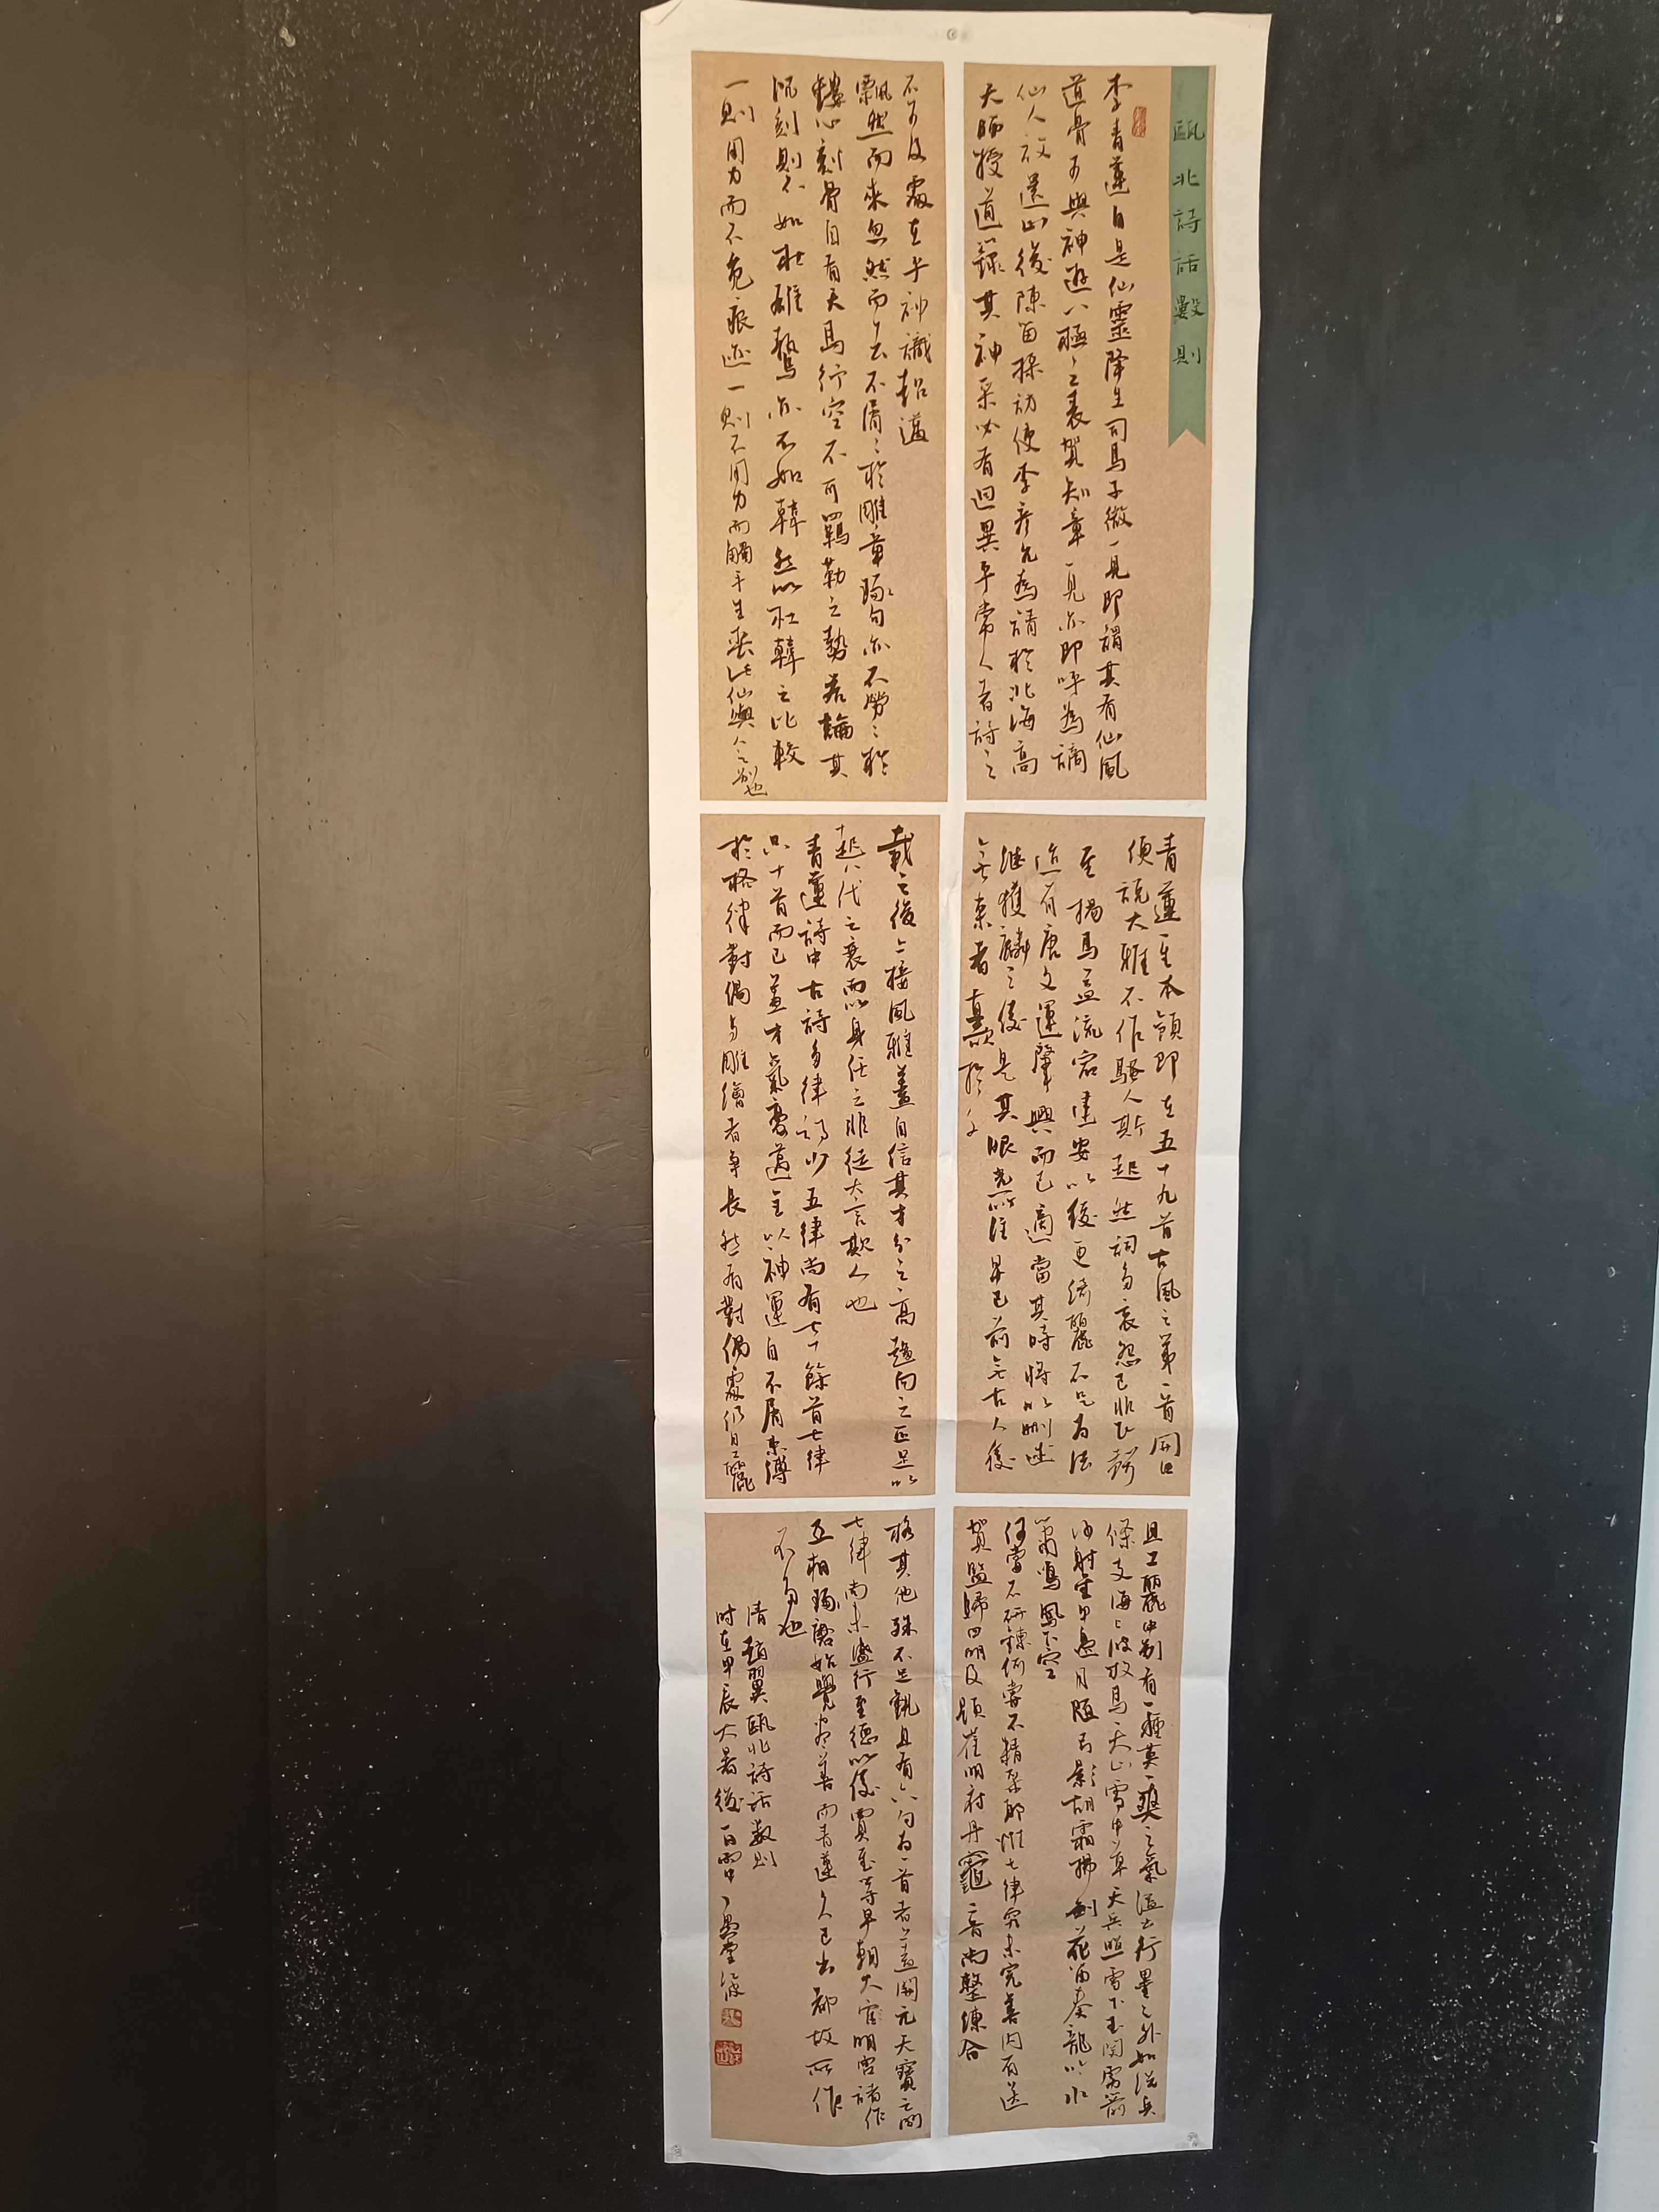 甌北詩話數則
李青蓮自是仙靈降生司馬子微一見即謂其有仙風
道骨可與神遊八極之表賀知章一見亦即呼為謫
仙人放還山後陳留採訪使李彥允為請於北海高
天師授道籙其神采必有迥異乎常人者詩之
不可及處在乎神識超邁
飄然而來忽然而去不屑屑於雕章琢句亦不勞勞於
鏤心刻骨自有天馬行空不可羈勒之勢若論其
沉刻則不如杜雄鷙亦不如韓然以杜韓之比較
一則用力而不免痕迹一則不用力而觸手生春此仙與人之別也
青蓮一生本領即在五十九首古風之第一首開口
便說大雅不作騷人斯起然詞多哀怨已非正聲
至揚馬益流宕建安以後更綺麗不足為法
迨有唐文運肇興而已適當其時將以刪述
繼獲麟之後是其眼光所注早已前無古人後
無來者直欲於千
載之後上接風雅蓋自信其才分之高趨向之正足以
起八代之衰而以身任之非徒大言欺人也
青蓮詩中古詩多律詩少五律尚有七十餘首七律
只十首而已蓋才氣豪邁全以神運自不屑束縛
於格律對偶與雕繪者爭長然有對偶處仍自工麗
且工麗中別有一種英爽之氣溢出行墨之外如洗兵
條支海上波放馬天山雪中草天兵照雪下玉關虜箭
如沙射金甲邊月隨弓影胡霜拂劍花笛奏龍吟水
簫鳴鳳下空
何嘗不研鍊何嘗不精采耶惟七律究未完善內有送
賀監歸四明及題崔明府丹竈二首尚整練合
格其他殊不足觀且有六句為一首者蓋開元天寶之間
七律尚未盛行至德以後賈至等早朝大宮明宮諸作
互相琢磨始覺盡善而青蓮久已出都故所作
不多也
清趙翼甌北詩話數則
時在甲辰大暑後一日雨中